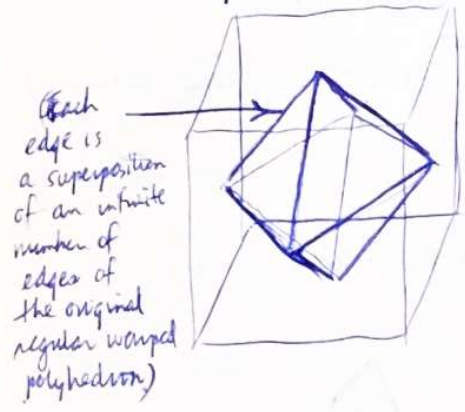 (Each
edge is
a superposition
of an infinite
number of
edges of
the original
regular warped
polyhedron)